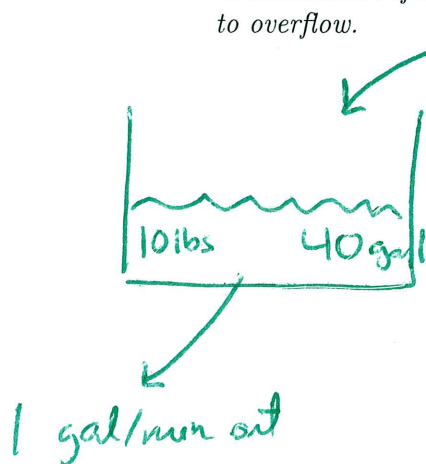 to overflow.
10 lbs 40 gal
1 gal/min out